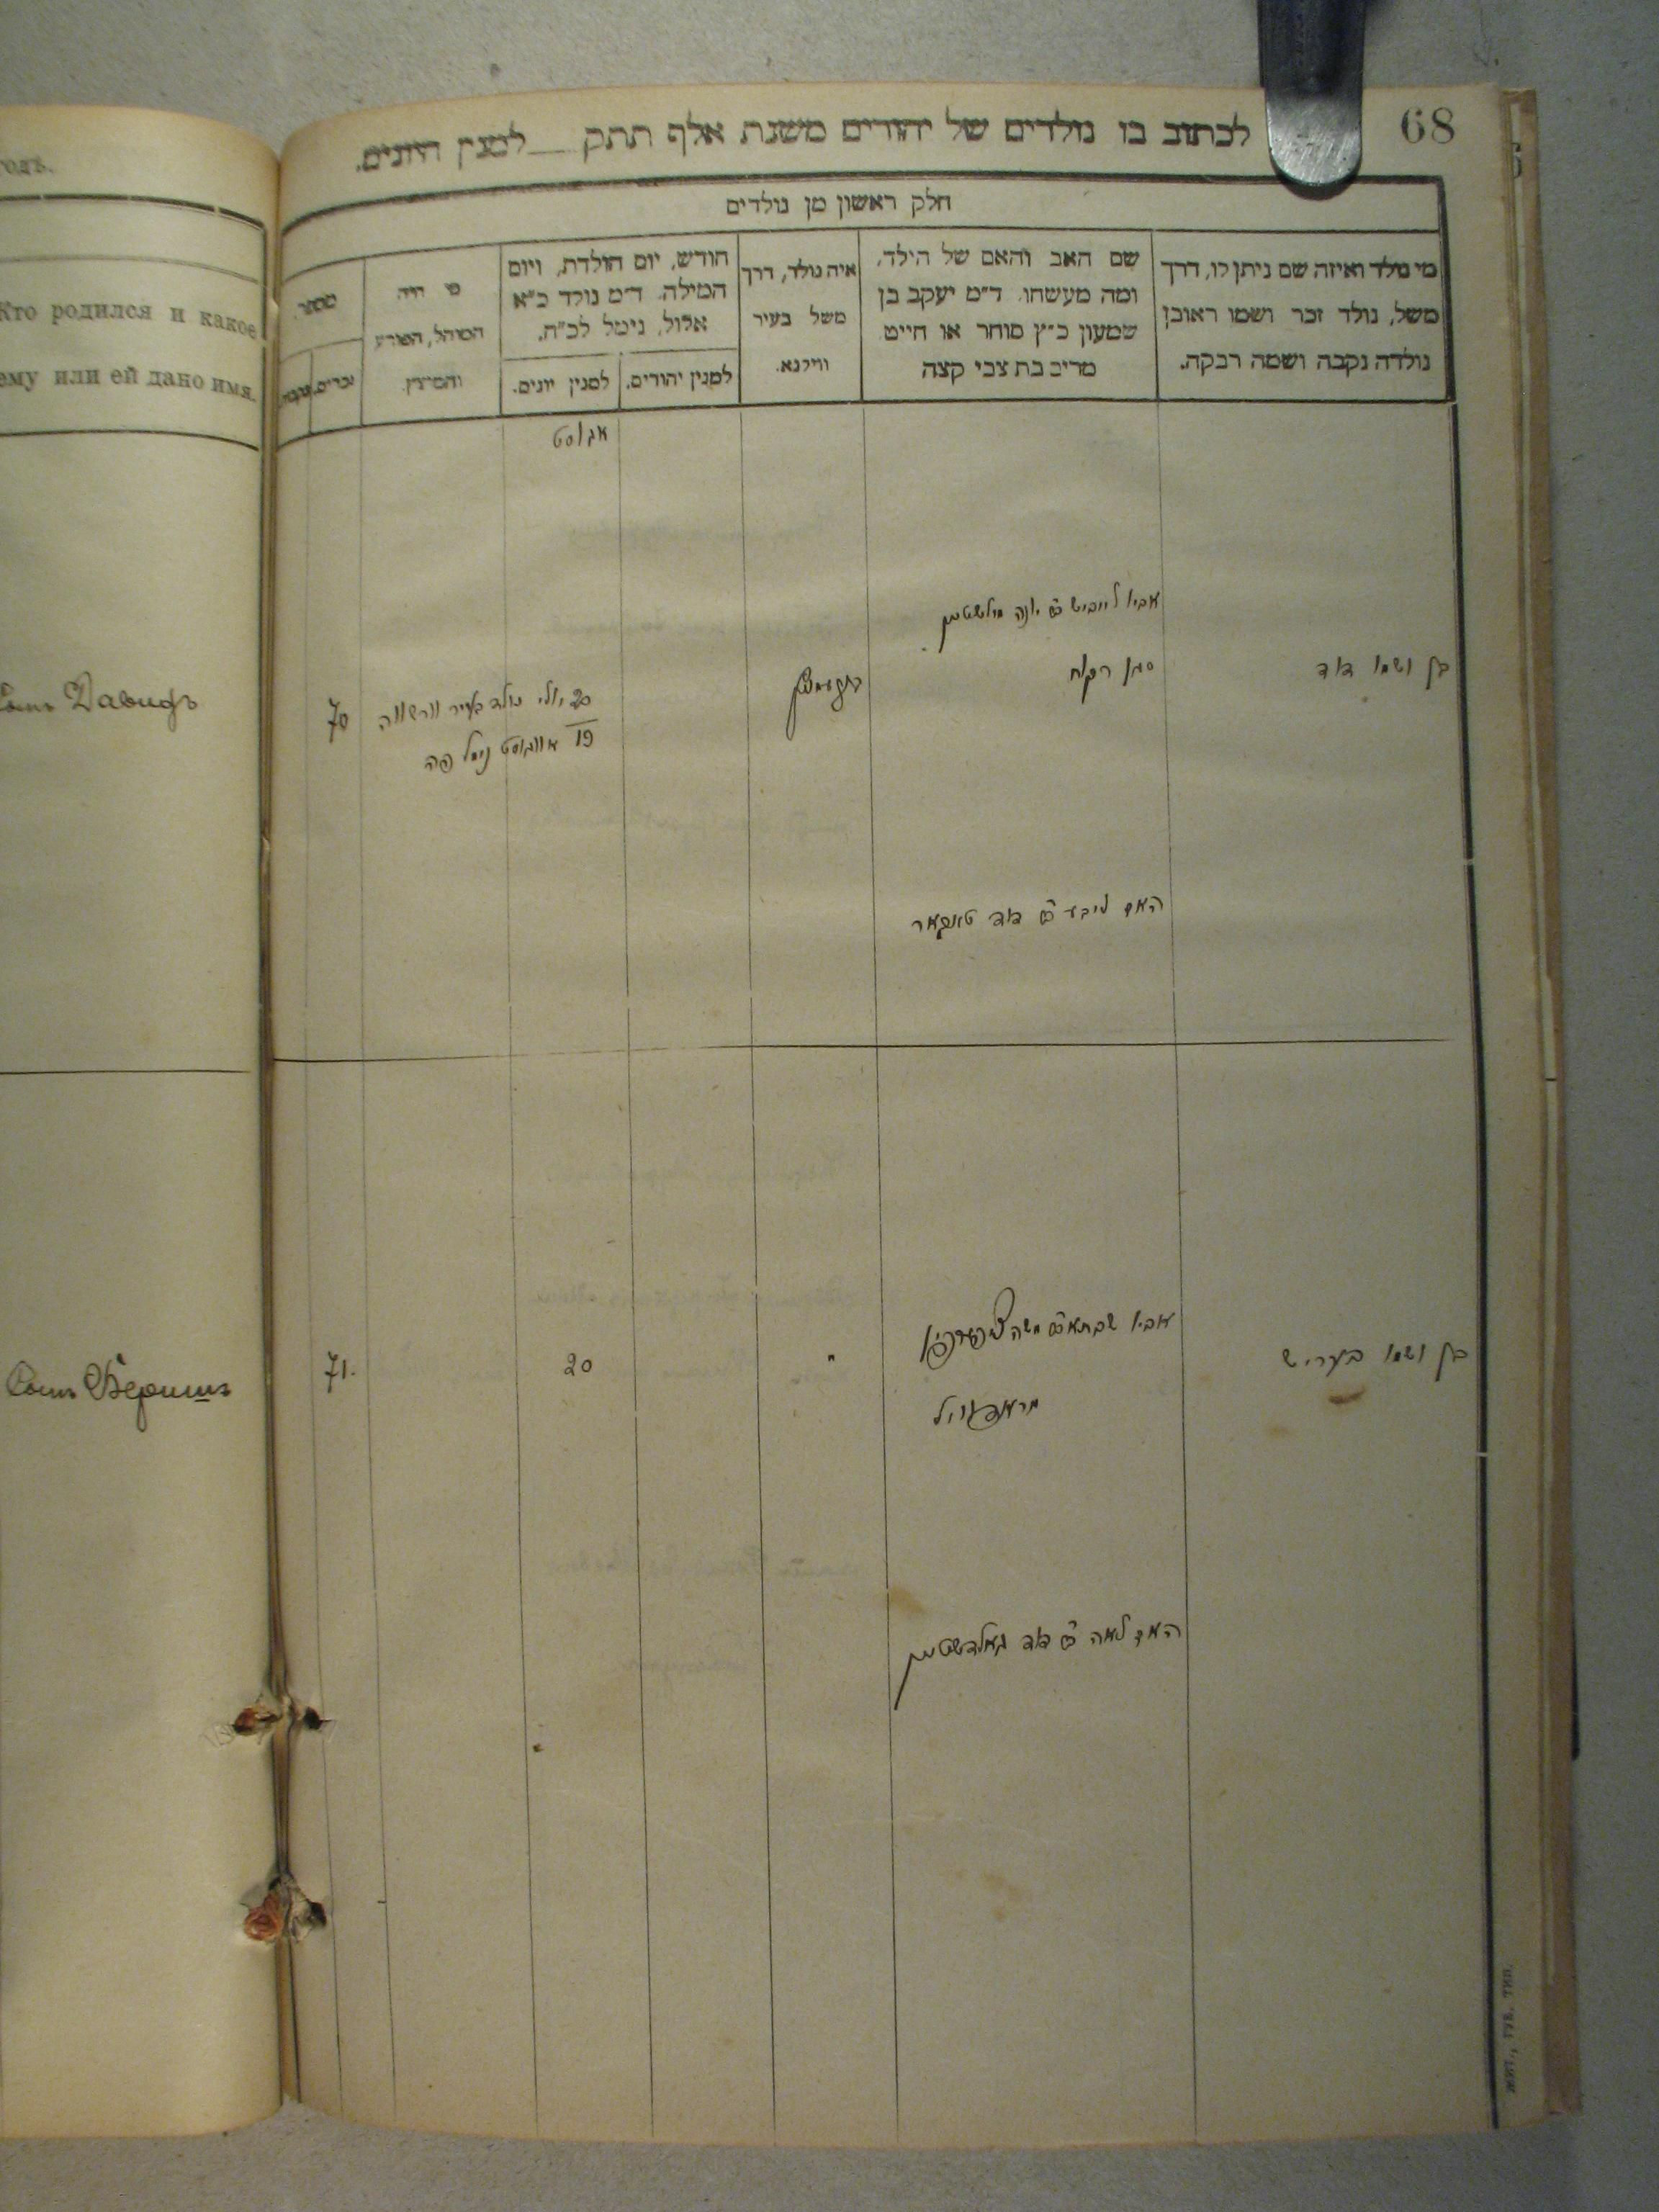 68
לכתוב בו נולדים של יהודים משנת אלף תתק __ למנין היונים.
חלק ראשון מן נולדים
מי נולד ואיזה שם ניתן לו, דרך
משל, נולד זכר ושמו ראובן
נולדה נקבה ושמה רבקה.
שם האב והאם של הילד,
ומה מעשהו. ד״מ יעקב בן
שמעון כ״ץ סוחר או חייט
מרים בת צבי קצה
איה נולד, דרך
משל בעיר
ווילנא.
חודש, יום הולדת, ויום
המילה. ד״מ נולד כ״א
אלול, נימל לכ״ח.
למנין יהודים.
למנין יונים.
מי היה
המוהל, הפורע
והמוצץ.
מספר.
זכרים.
אגוסט
בן ושמו דוד
אביו לייביש ב״ר יונה
האם ליבע ב״ר דוד
20 יולי נולד בעיר ווארשווה
19 אווגוסט נימל פה
70
בן ושמו בעריש
אביו שבתאי ב״ר משה
האם לאה ב״ר דוד גאלדשטיין
"
20
71.
годъ.
Кто родился и какое
ему или ей дано имя.
Сынъ Давидъ
Сынъ Беришъ
жит., губ. тип.